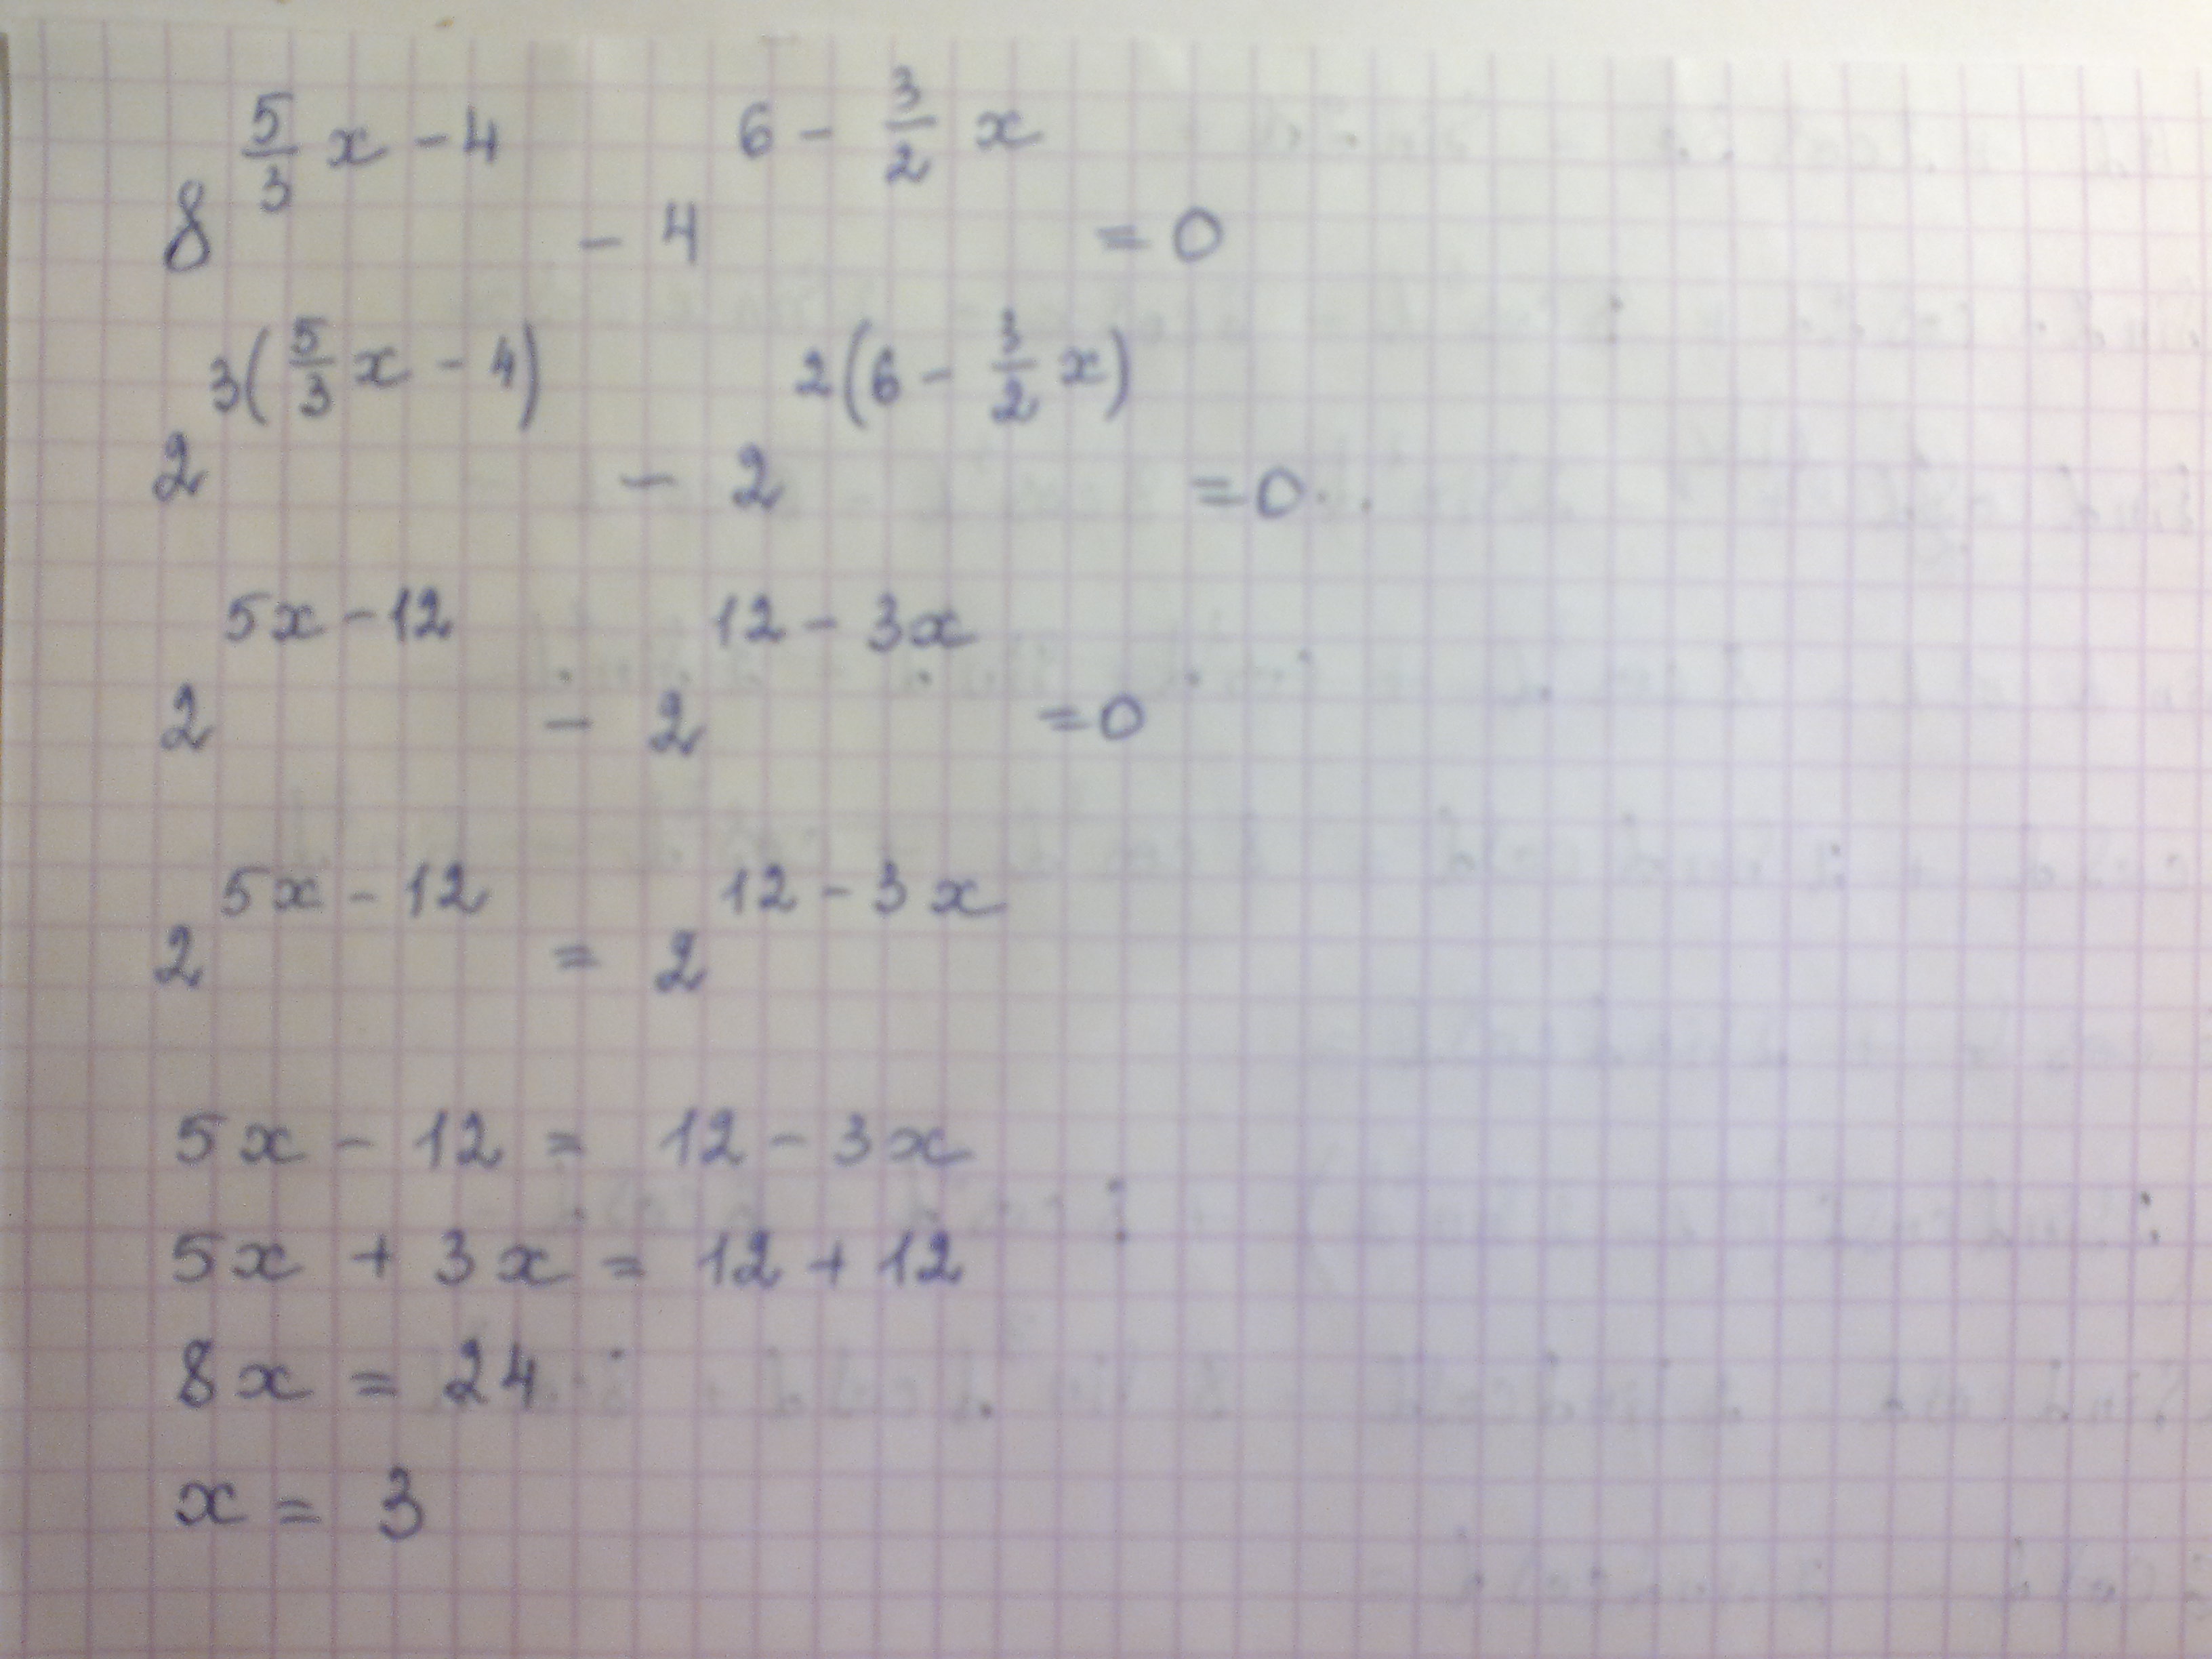 8^{\frac{5}{3}x-4} - 4^{6-\frac{3}{2}x} = 0
2^{3(\frac{5}{3}x-4)} - 2^{2(6-\frac{3}{2}x)} = 0
2^{5x-12} - 2^{12-3x} = 0
2^{5x-12} = 2^{12-3x}
5x - 12 = 12 - 3x
5x + 3x = 12 + 12
8x = 24
x = 3